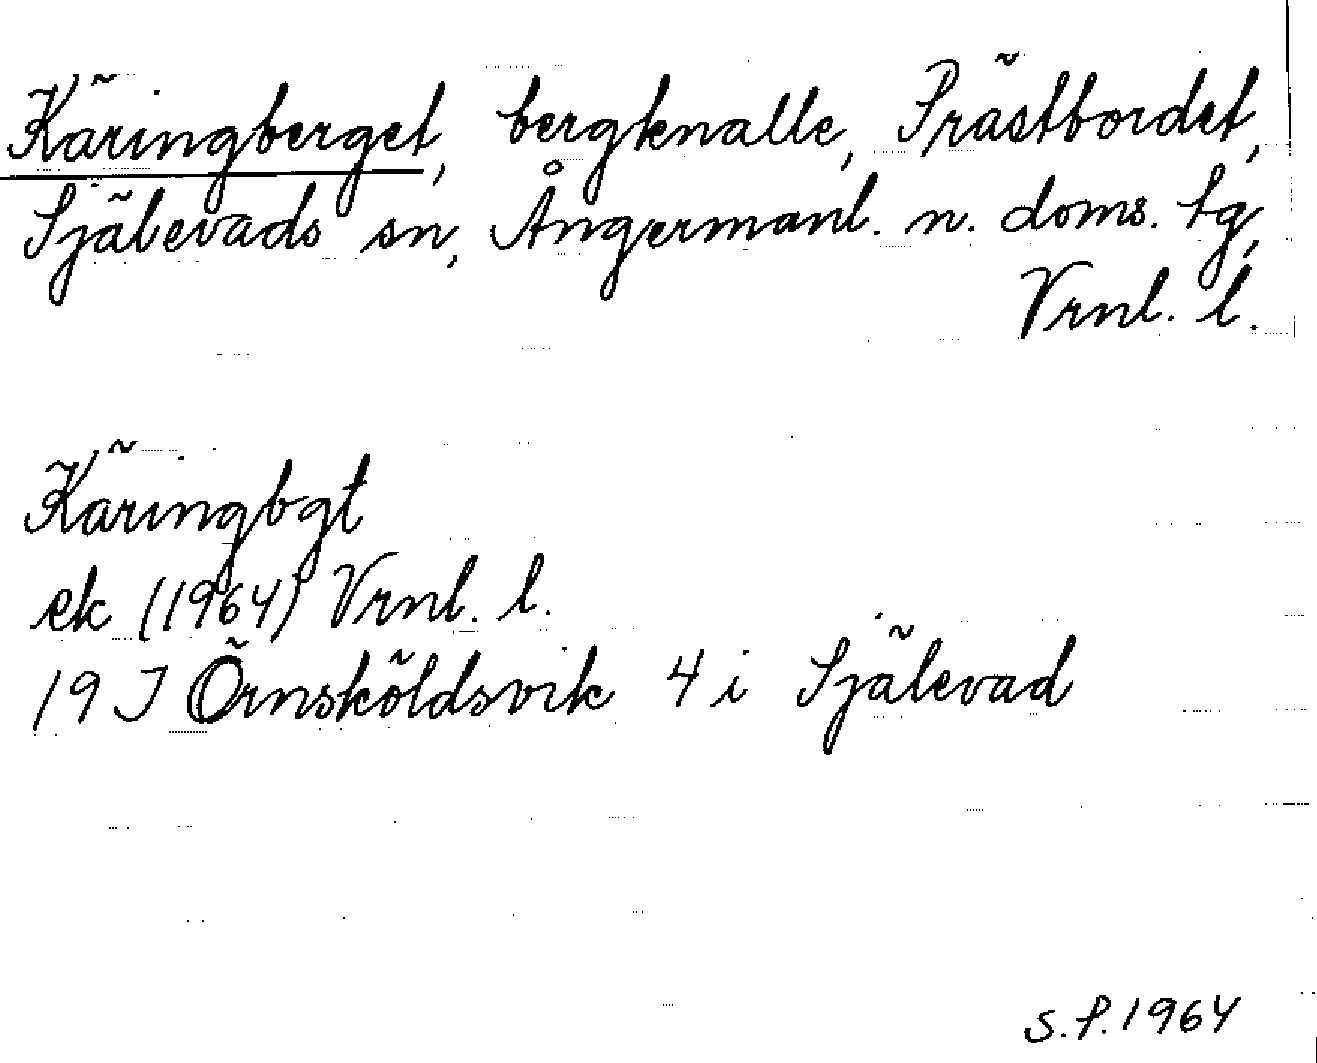 Käringberget, bergknalle, Prästbordet,
Själevads sn, Ångermanl. n. doms. tg,
Vrnl. l.
Käringbgt
ek (1964) Vrnl. l.
19 J Örnsköldsvik 4 i Själevad
S.P. 1964